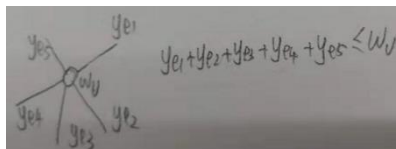 ye1
ye5
wv
ye4
ye3
ye2
ye1+ye2+ye3+ye4+ye5≤Wv